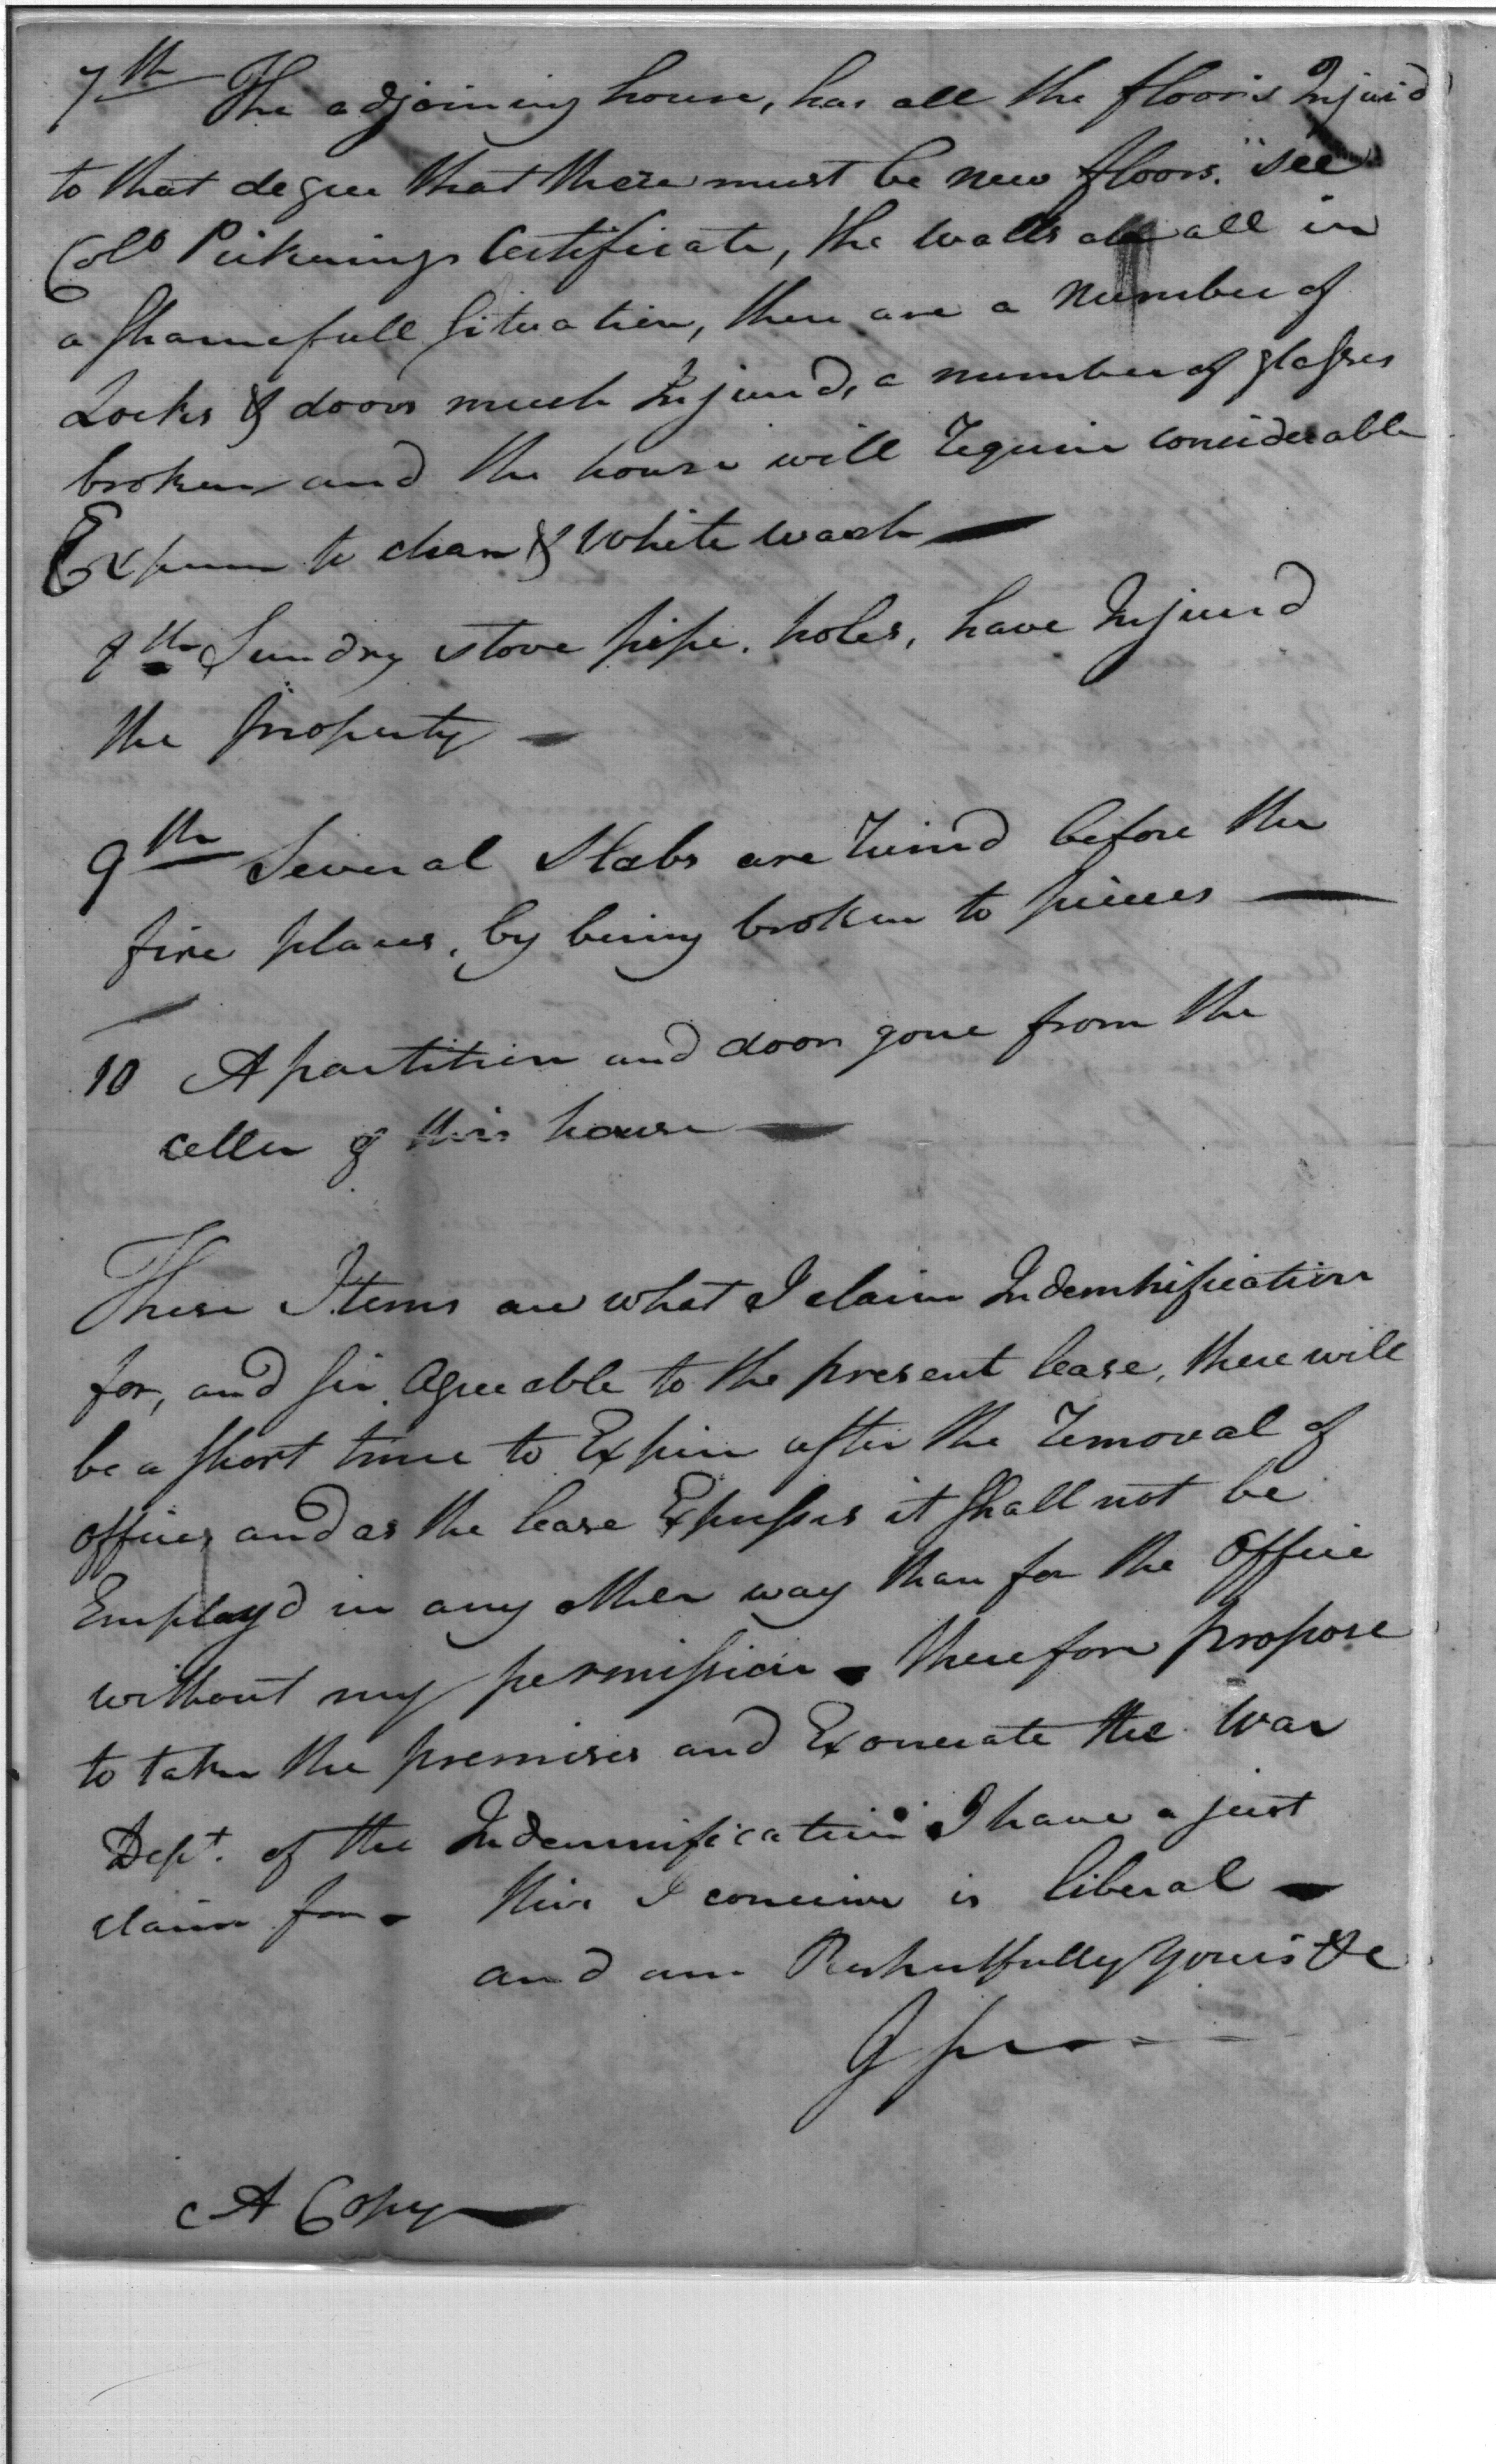 7th The adjoining house, has all the floors Injurd
to that degree that there must be new floors. "see
Colo Pickerings Certificate, the walls are all in
a shamefull situation, there are a number of
Locks & doors much Injured, a number of glasses
broken and the house will require considerable
Expense to clean & white wash
8th Sundry stove pipe holes, have Injured
the property
9th Several Slabs are ruind before the
fire places, by being broken to pieces
10 A partition and door gone from the
celler of this house
These Items are what I claim Indemnification
for, and sir agreeable to the present lease, there will
be a short time to Expire after the removal of
offices and as the lease Expresses it shall not be
Employd in any other way than for the office
without my permission - therefore propose
to take the premises and Exonerate the War
Dept. of the Indemnification I have a just
claim for - this I conceive is liberal
and am Respectfully yours &c
A Copy